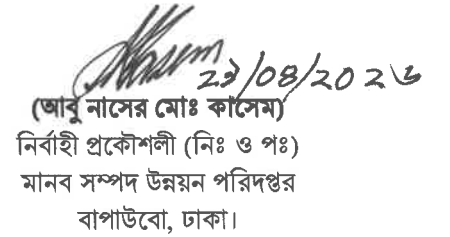 ২৯/০৪/২০২৬
(আবু নাসের মোঃ কাসেম)
নির্বাহী প্রকৌশলী (নিঃ ও পঃ)
মানব সম্পদ উন্নয়ন পরিদপ্তর
বাপাউবো, ঢাকা।